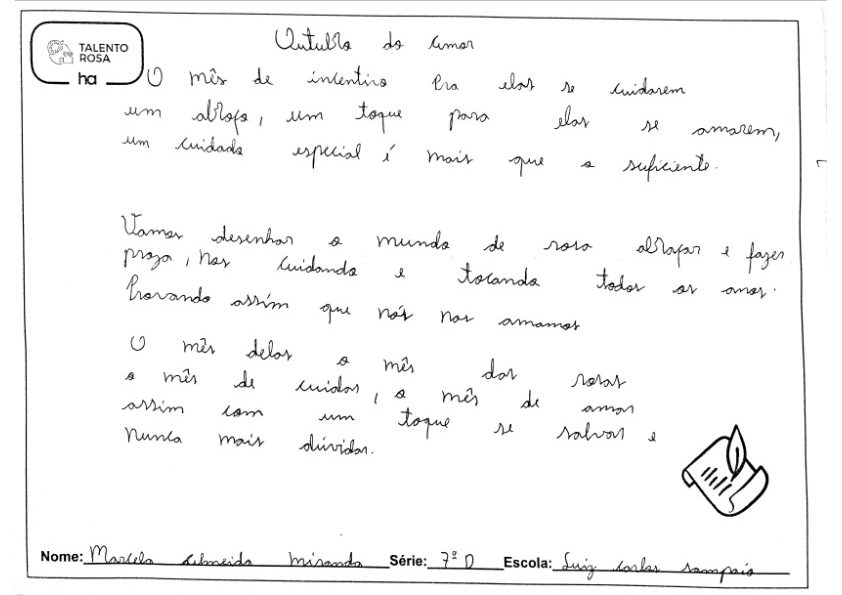 TALENTO
ROSA
ha
Outubro do Amor
O mês de incentivo Pra elas se cuidarem
um abraço, um toque para elas se amarem,
um cuidado especial é mais que o suficiente.
Vamos desenhar o mundo de rosa abraçar e fazer
proza, nos cuidando e tocando todos os anos.
Provando assim que nós nos amamos
O mês delas o mês das rosas
o mês de cuidar, o mês de amar
assim com um toque se salvar e
nunca mais dúvidar.
Nome: Marcela Almeida Miranda Série: 7º D Escola: Luiz Carlos Sampaio